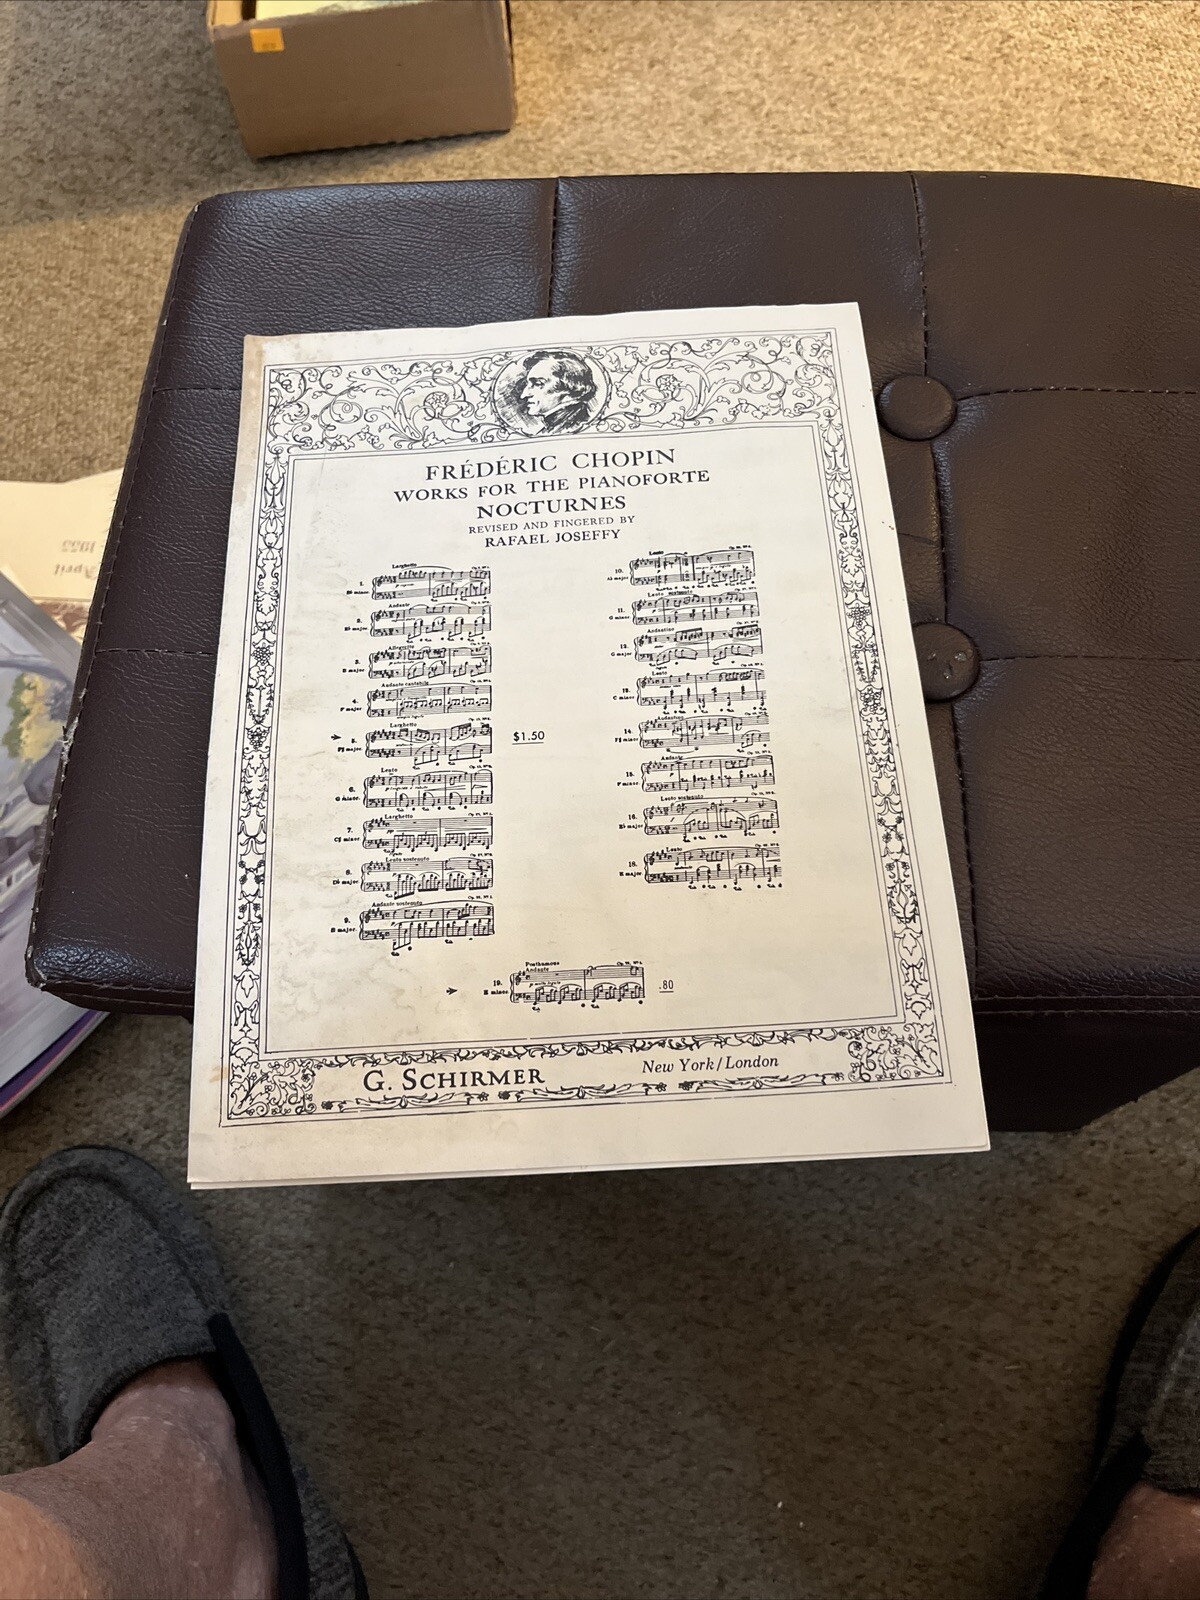 April
1955
FRÉDÉRIC CHOPIN
WORKS FOR THE PIANOFORTE
NOCTURNES
REVISED AND FINGERED BY
RAFAEL JOSEFFY
Larghetto
1.
B♭ minor
Andante
2.
E♭ major
Allegretto
3.
B major
Andante cantabile
4.
F major
Larghetto
5.
F♯ major
$1.50
Lento
6.
G minor
Larghetto
7.
C♯ minor
Lento sostenuto
8.
D♭ major
Andante sostenuto
9.
B major
Lento
10.
A♭ major
Lento sostenuto
11.
G minor
Andantino
12.
G major
Lento
13.
C minor
Andantino
14.
F♯ minor
Andante
15.
F minor
Lento sostenuto
16.
E♭ major
Lento
18.
E major
Posthumous
Andante
19.
E minor
.80
G. SCHIRMER
New York/London